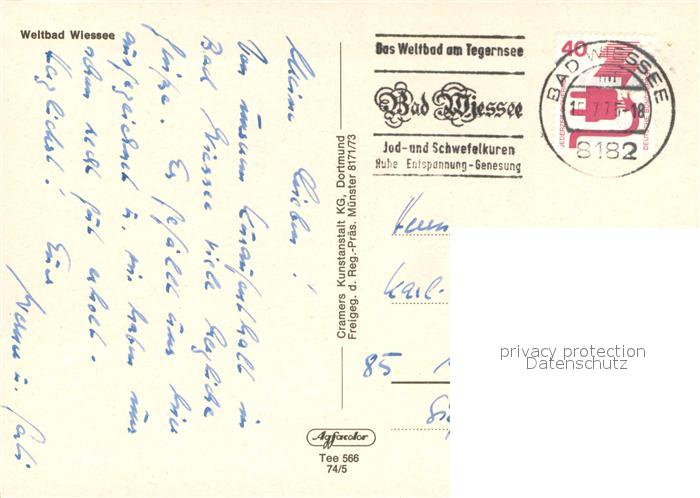 Weltbad Wiessee
Meine Lieben!
Von unserem Kuraufenthalt in
Bad Wiessee viele herzliche
Grüße. Es gefällt uns hier
ausgezeichnet u. wir haben uns
schon recht gut erholt.
Herzlichst! Eure
Cramers Kunstanstalt KG, Dortmund
Freigeg. d. Reg.-Präs. Münster 8171/73
Agfacolor
Tee 566
74/5
Das Weltbad am Tegernsee
Bad Wiessee
Jod- und Schwefelkuren
Ruhe Entspannung - Genesung
40
BAD WIESSEE
8182
Herrn
Karl-
85
privacy protection
Datenschutz